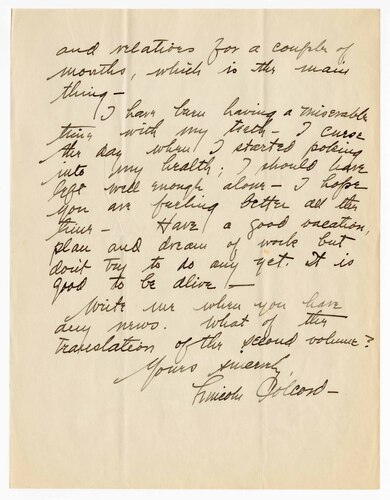 and relatives for a couple of
months, which is the main
thing —
I have been having a miserable
time with my teeth — I curse
the day when I started poking
into my health; I should have
left well enough alone — I hope
you are feeling better all the
time — Have a good vacation,
plan and dream of work but
don't try to do any yet. It is
good to be alive —
Write me when you have
any news. What of the
translation of the second volume?
Yours sincerely,
Lincoln Colcord —